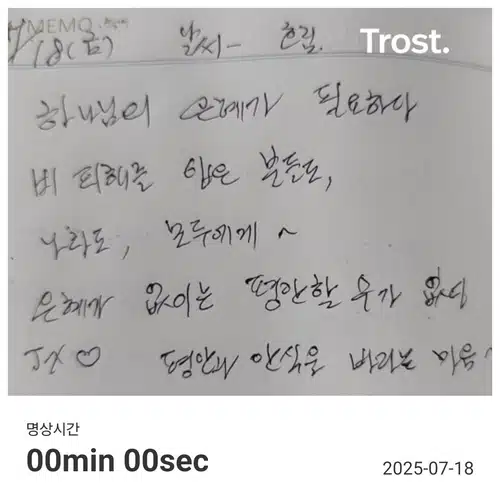 MEMO
7/18(금) 날씨- 흐림.
Trost.
하나님의 은혜가 필요하다
비 피해를 입은 분들도,
나라도, 모두에게 ~
은혜가 없이는 평안할 수가 없다
JX♡ 평안과 안식을 바라는 마음
명상시간
00min 00sec
2025-07-18